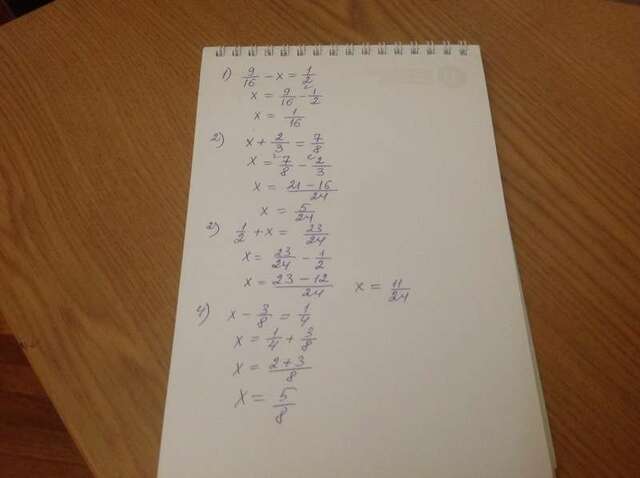 1) 9/16 - x = 1/2
x = 9/16 - 1/2
x = 1/16
2) x + 2/3 = 7/8
x = 7/8 - 2/3
x = 21-16/24
x = 5/24
2) 1/2 + x = 23/24
x = 23/24 - 1/2
x = 23-12/24 x = 11/24
4) x - 3/8 = 1/4
x = 1/4 + 3/8
x = 2+3/8
x = 5/8